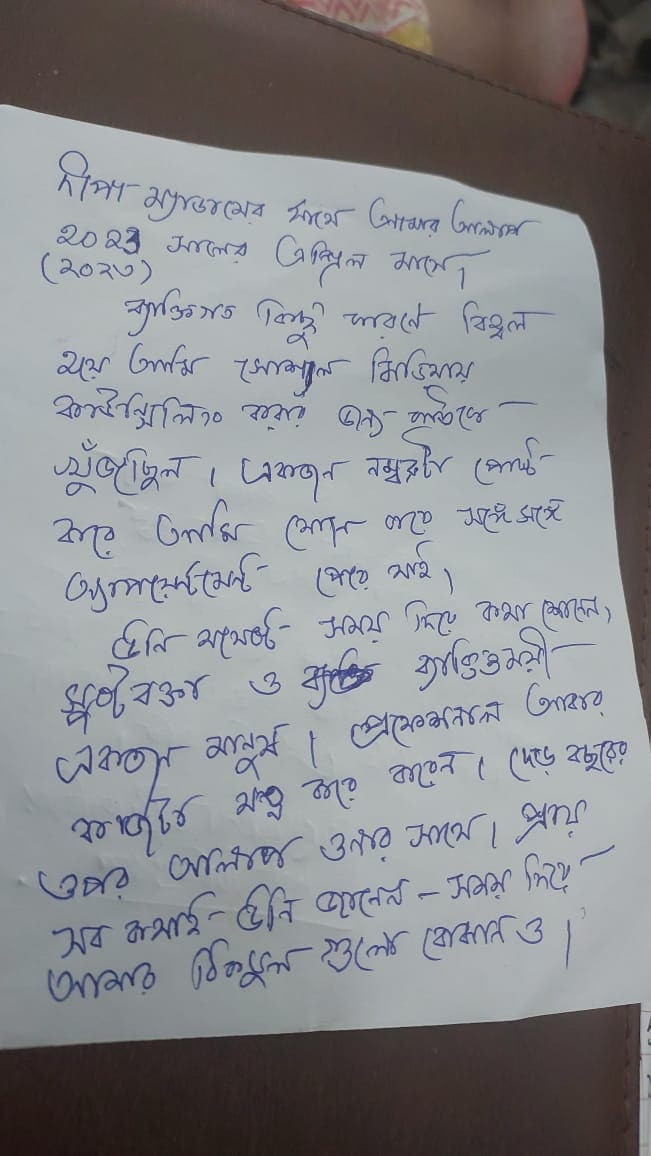 দীপা ম্যাডামের সাথে আমার আলাপ
২০২3 সালের এপ্রিল মাসে।
(২০২৩)
ব্যক্তিগত কিছু কারণে বিহ্বল
হয়ে আমি সোশাল মিডিয়ায়
কাউন্সিলিং করার জন্য
খুঁজছিল। একজন নম্বরটা পোস্ট
করে আমি ফোন করে সঙ্গে সঙ্গে
অ্যাপয়েন্টমেন্ট পেয়ে যাই।
উনি যথেষ্ট সময় দিয়ে কথা শোনেন,
স্পষ্টবক্তা ও ব্যক্তিত্বময়ী
একজন মানুষ। প্রফেশনাল আবার
কাজটা যত্ন করে করেন। দেড় বছরের
ওপর আলাপ ওনার সাথে। প্রায়
সব কথাই উনি জানেন – সময় দিয়ে
আমার ঠিকভুল গুলো বোঝান ও।